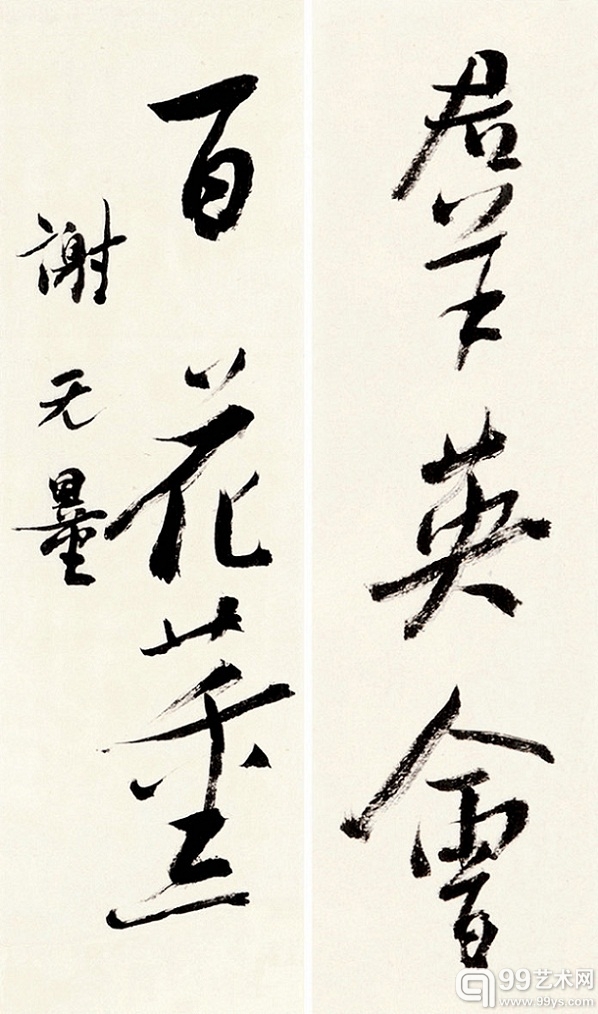 羣英會
百花薰
謝无量
99艺术网
www.99ys.com